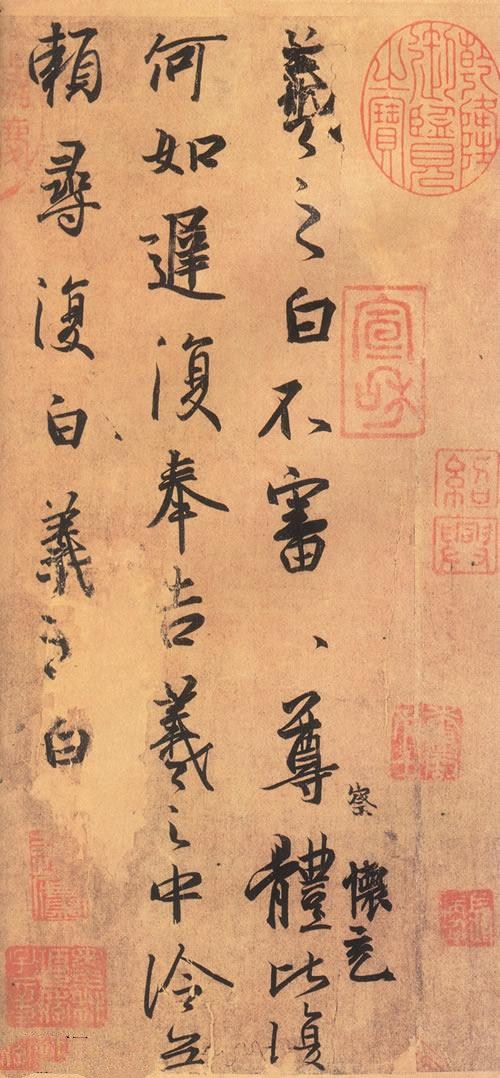 乾隆御覽之寶
宣和
紹興
察
懷充
羲之白不審、尊體比復
何如遲復奉告羲之中冷無
賴尋復白、羲之白